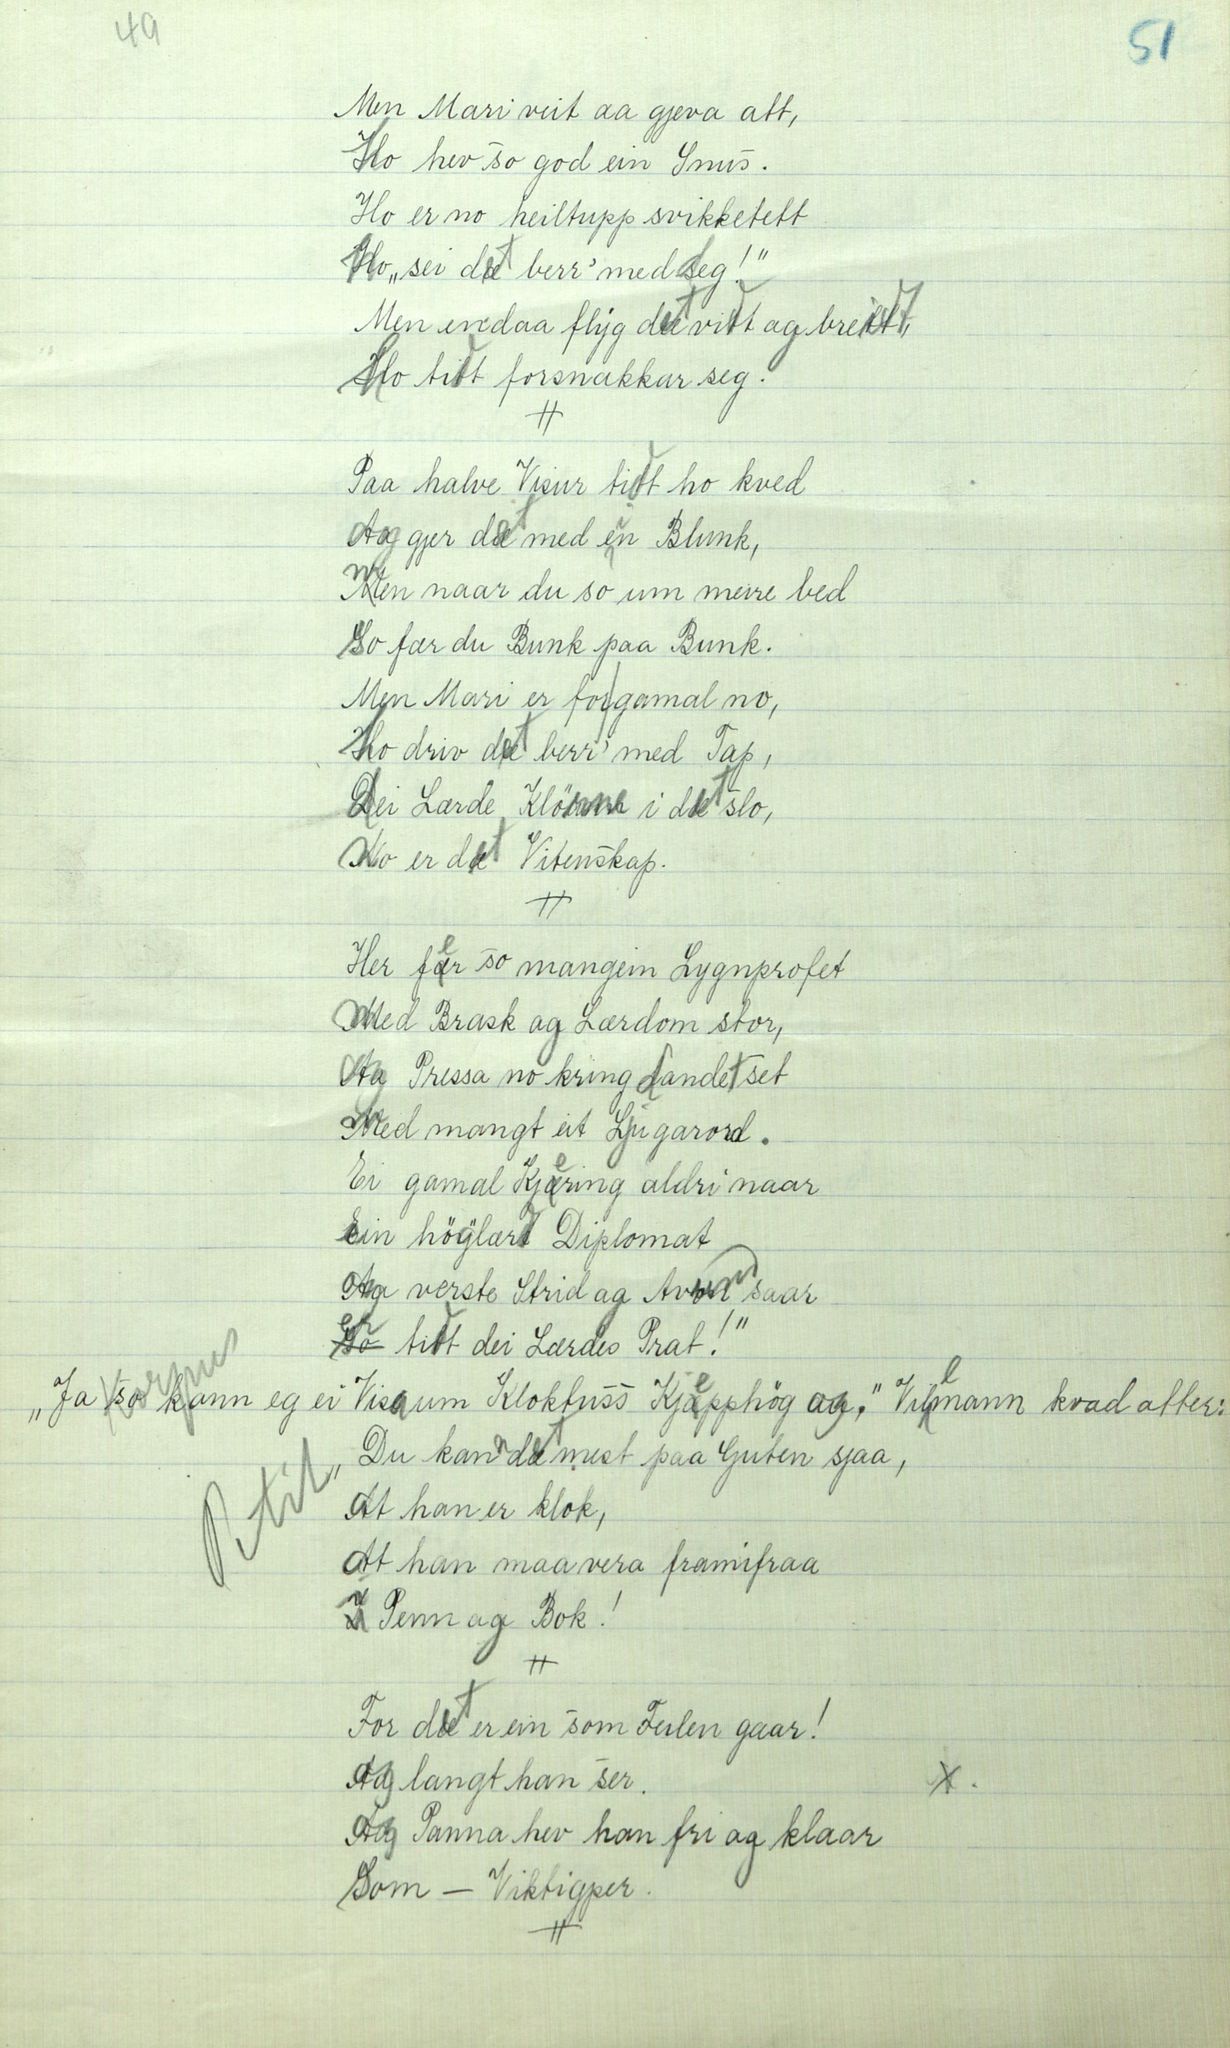 49
51
Men Mari veit aa gjeva att,
Ho hev so god ein Snus.
Ho er no heiltupp svikketett
Ho „sei det berr' med seg!"
Men endaa flyg det vidt ag breidt,
Ho tidt forsnakkar seg.
#
Paa halve Visur tidt ho kved
Ag gjer det med ein Blunk,
Men naar du so um meire bed
So fær du Bunk paa Bunk.
Men Mari er for gamal no,
Ho driv det berr' med Tap,
Dei Lærde Klönne i det slo,
No er det Vitenskap.
#
Her fer so mangein Lygnprofet
Med Brask ag Lærdom stor,
Ag Pressa no kring Landet set
Med mangt eit Ljugarord.
Ei gamal Kjering aldri naar
Ein höglærd Diplomat
Ag verste Strid ag Avundsaar
er tidt dei Lærdes Prat!"
Korpus
„Ja so kann eg ei Visa um Klokfuss Kjepphög ag," Vilemann kvad atter:
Petit
„Du kann det mest paa Guten sjaa,
At han er klok,
At han maa vera framifraa
i Penn ag Bok!
#
For det er ein som Feilen gaar!
Ag langt han ser. X.
Ag Panna hev han fri ag klaar
Som — Viktigper.
#